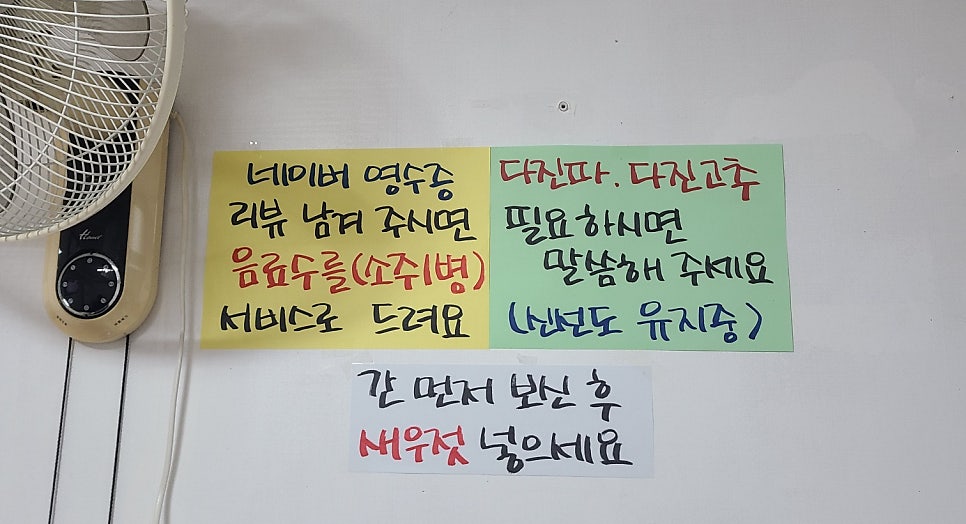 네이버 영수증
리뷰 남겨 주시면
음료수를(소주1병)
서비스로 드려요
다진파. 다진고추
필요하시면
말씀해 주세요
(신선도 유지중)
간 먼저 보신 후
새우젓 넣으세요